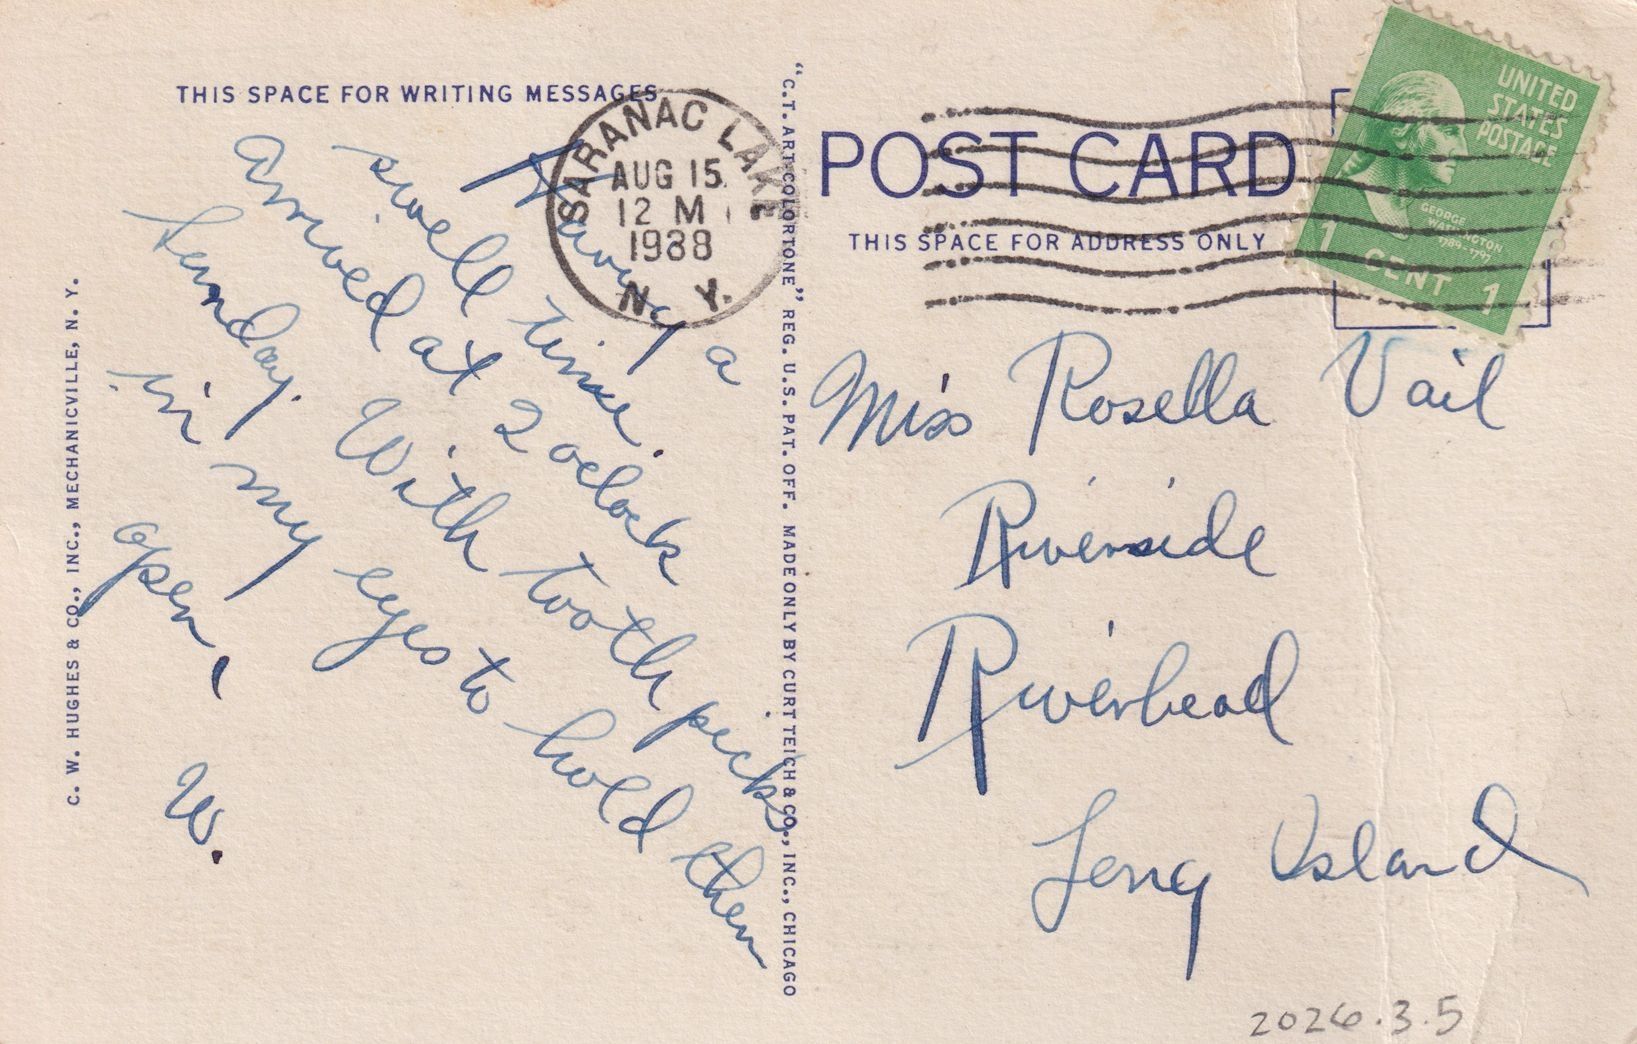 THIS SPACE FOR WRITING MESSAGES
Having a
swell time.
arrived at 2 oclock
Sunday. With tooth picks
in my eyes to hold them
open,
W.
C. W. HUGHES & CO., INC., MECHANICVILLE, N. Y.
SARANAC LAKE
AUG 15
12 M
1938
N. Y.
"C.T. ART-COLORTONE" REG. U.S. PAT. OFF. MADE ONLY BY CURT TEICH & CO., INC., CHICAGO
POST CARD
THIS SPACE FOR ADDRESS ONLY
UNITED
STATES
POSTAGE
GEORGE
WASHINGTON
1789-1797
1 CENT 1
Miss Rosella Vail
Riverside
Riverhead
Long Island
2026.3.5